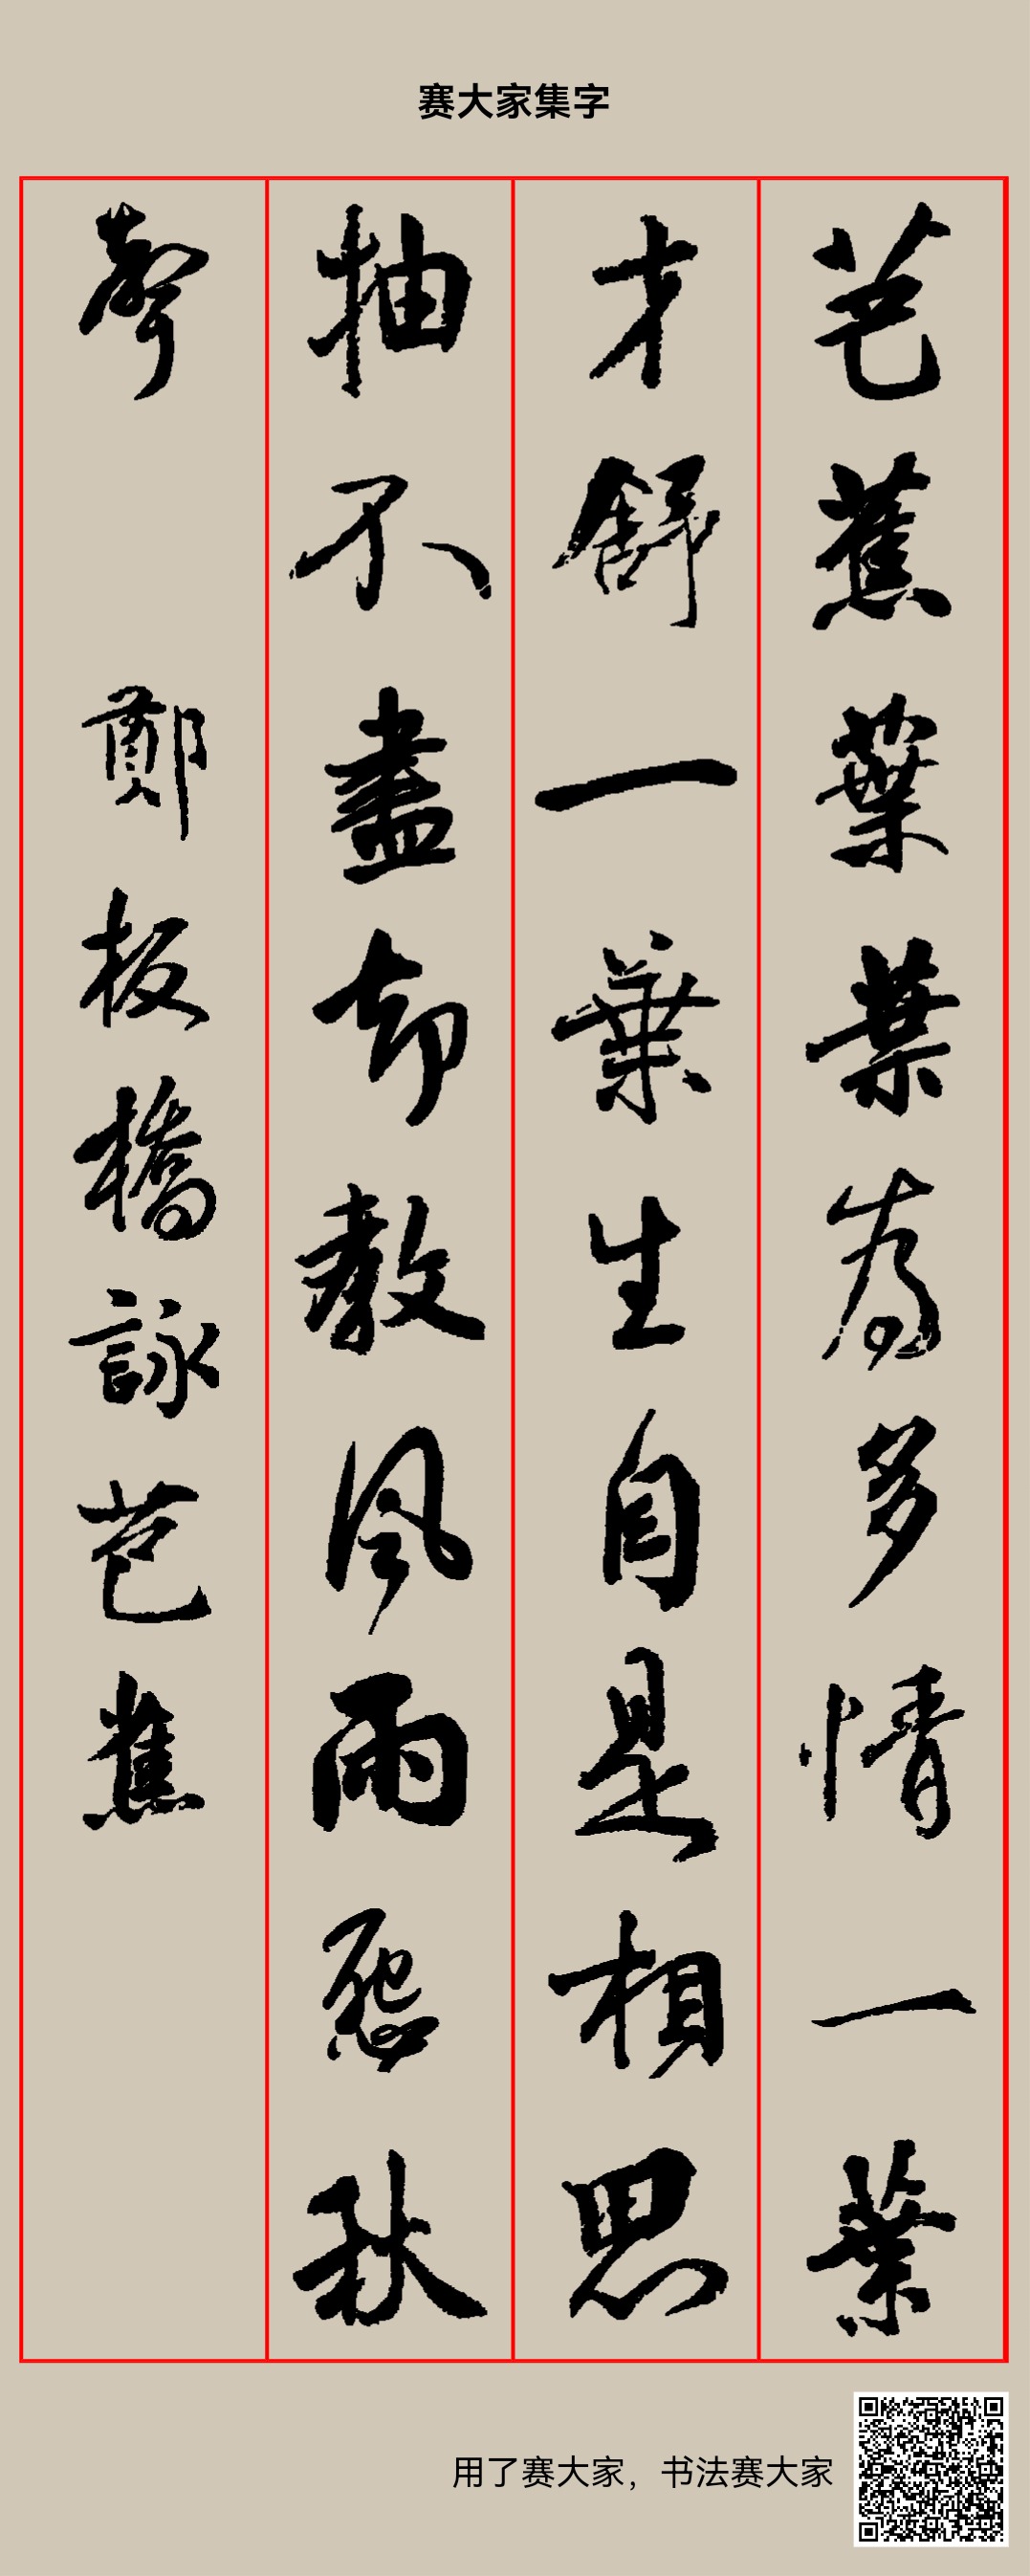 赛大家集字
芭蕉葉葉為多情一葉
才舒一葉生自是相思
抽不盡却教風雨怨秋
聲 鄭板橋詠芭蕉
用了赛大家，书法赛大家